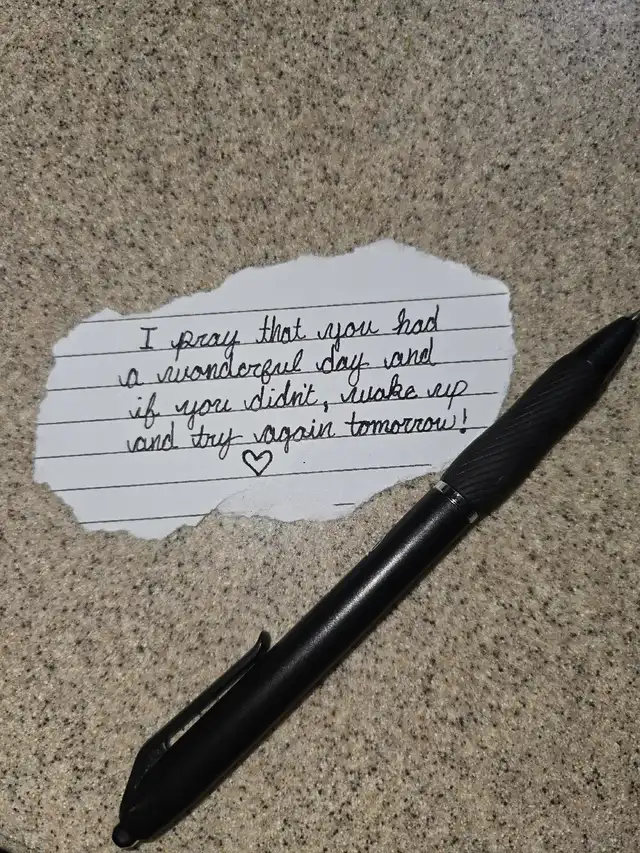 I pray that you had
a wonderful day and
if you didn't, wake up
and try again tomorrow!
♡